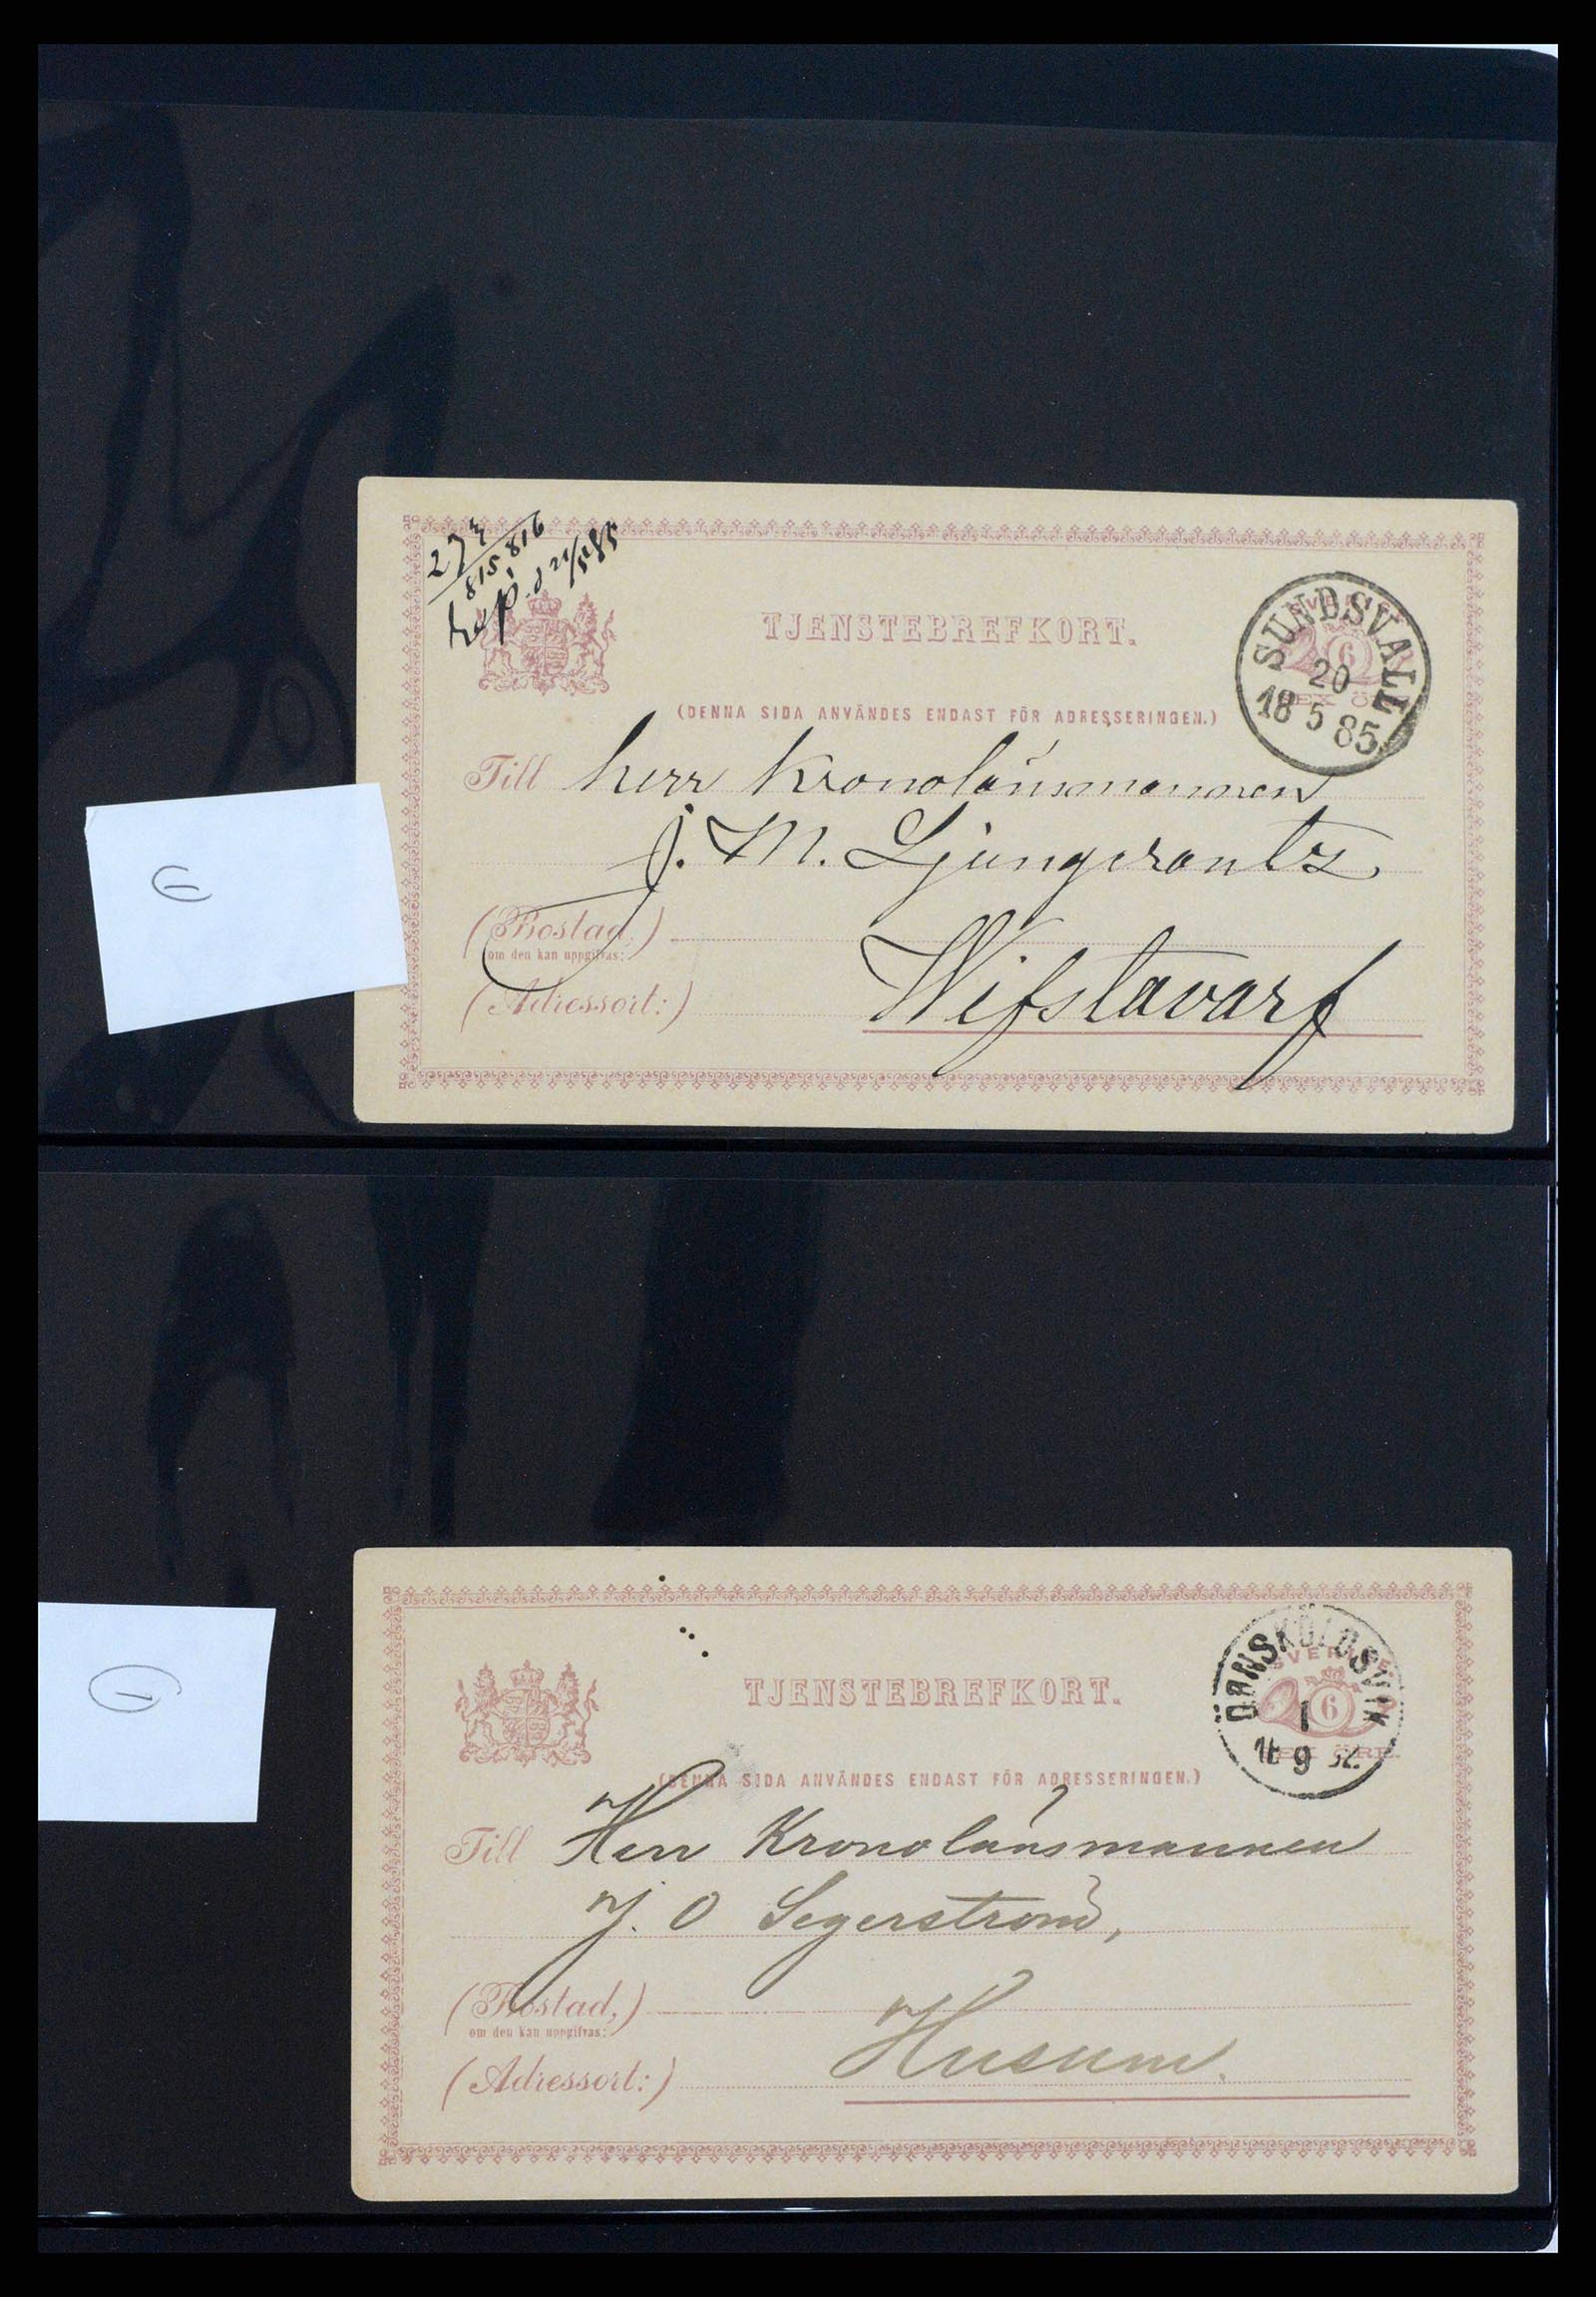 815, 816
TJENSTEBREFKORT.
SUNDSVALL
20
18 5 85
6
(DENNA SIDA ANVÄNDES ENDAST FÖR ADRESSERINGEN.)
Till herr Kronolänsmannen
J. M. Ljungcrantz
(Bostad,)
om den kan uppgifvas:
(Adressort:) Wifstavarf
TJENSTEBREFKORT.
ÖRNSKÖLDSVIK
1
18 9 82
SVERIGE
6
SEX ÖRE.
(DENNA SIDA ANVÄNDES ENDAST FÖR ADRESSERINGEN.)
Till Herr Kronolänsmannen
J. O Segerström,
(Bostad,)
om den kan uppgifvas:
(Adressort:) Husum.